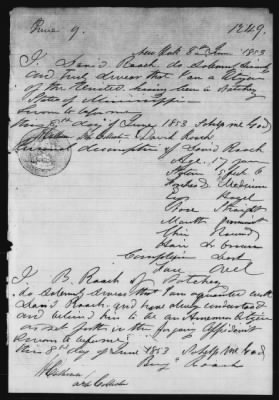 June 9. 1249.
New York 8th June 1853
I, David Roach do Solemnly
and truly swear that I am a Citizen
of the United, having been in Natchez
State of Mississippi
Sworn to before me
this 8th day of June 1853 So help me God,
David Roach
Personal description of David Roach
Age 17 years
Stature 5 feet 6
Forehead Medium
Eyes Hazel
Nose Straight
Mouth Prominent
Chin Round
Hair Lt Brown
Complexion
Face Oval
I, B. Roach of Natchez
do Solemnly swear that I am acquainted with
David Roach, and have always understood
and believed him to be an American Citizen
as set forth in the forgoing Affidavit
Sworn to before me
this 8th day of June 1853 So help me God,
Benj Roach